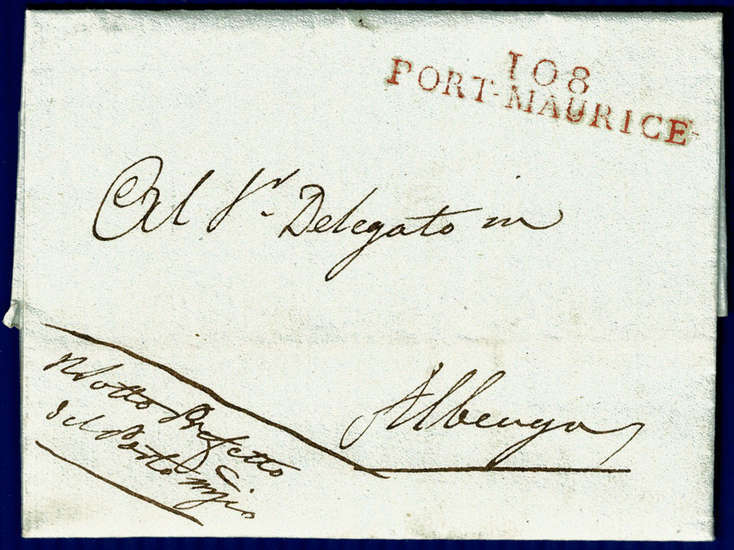 108
PORT-MAURICE
Al Sr. Delegato in
Albenga
Il Sotto Prefetto
del Porto